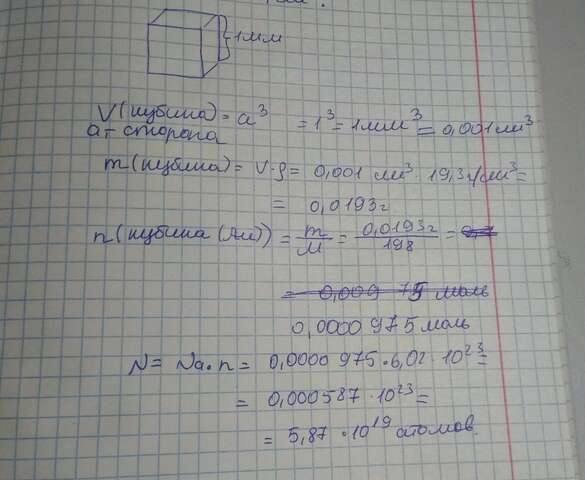 1мм
V(кубика) = a³ = 1³ = 1мм³ = 0,001см³
a - сторона
m(кубика) = V·ρ = 0,001 см³ · 19,3г/см³ =
= 0,0193г
n(кубика (Au)) = m/M = 0,0193г/198 =
= 0,009 75 моль
0,0000975 моль
N = Na·n = 0,0000975·6,02·10²³ =
= 0,000587·10²³ =
= 5,87·10¹⁹ атомов.